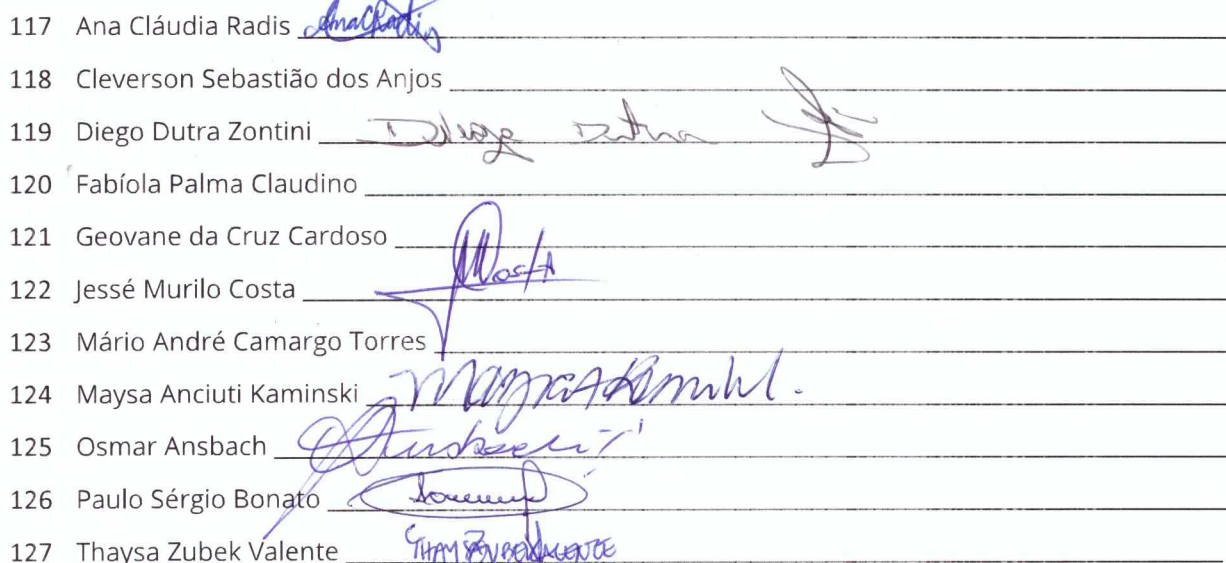 117 Ana Cláudia Radis AnaCRadis
118 Cleverson Sebastião dos Anjos
119 Diego Dutra Zontini Diego Dutra
120 Fabíola Palma Claudino
121 Geovane da Cruz Cardoso
122 Jessé Murilo Costa JMCosta
123 Mário André Camargo Torres
124 Maysa Anciuti Kaminski
125 Osmar Ansbach
126 Paulo Sérgio Bonato
127 Thaysa Zubek Valente THAYSA ZUBEK VALENTE